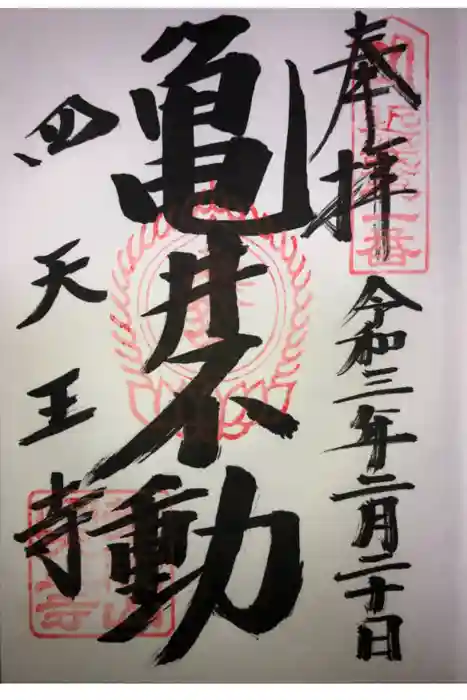 奉拝
令和三年二月二十日
亀井不動
四天王寺